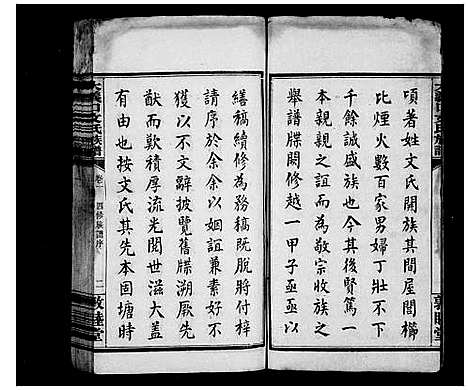 項著姓文氏閥族其間屋閭櫛
比煙火數百家男婦丁壯不下
千餘誠盛族也今其後賢篤一
本親親之誼而為敬宗收族之
舉譜牒闕修越一甲子亟亟以
繕稿續修為務稿既脫將付梓
請序於余余以姻誼兼素好不
獲以不文辭披覽舊牒溯厥先
猷而歎積厚流光閱世滋大蓋
有由也按文氏其先本固塘時
文氏族譜
卷一
四修族譜序
二
敦睦堂